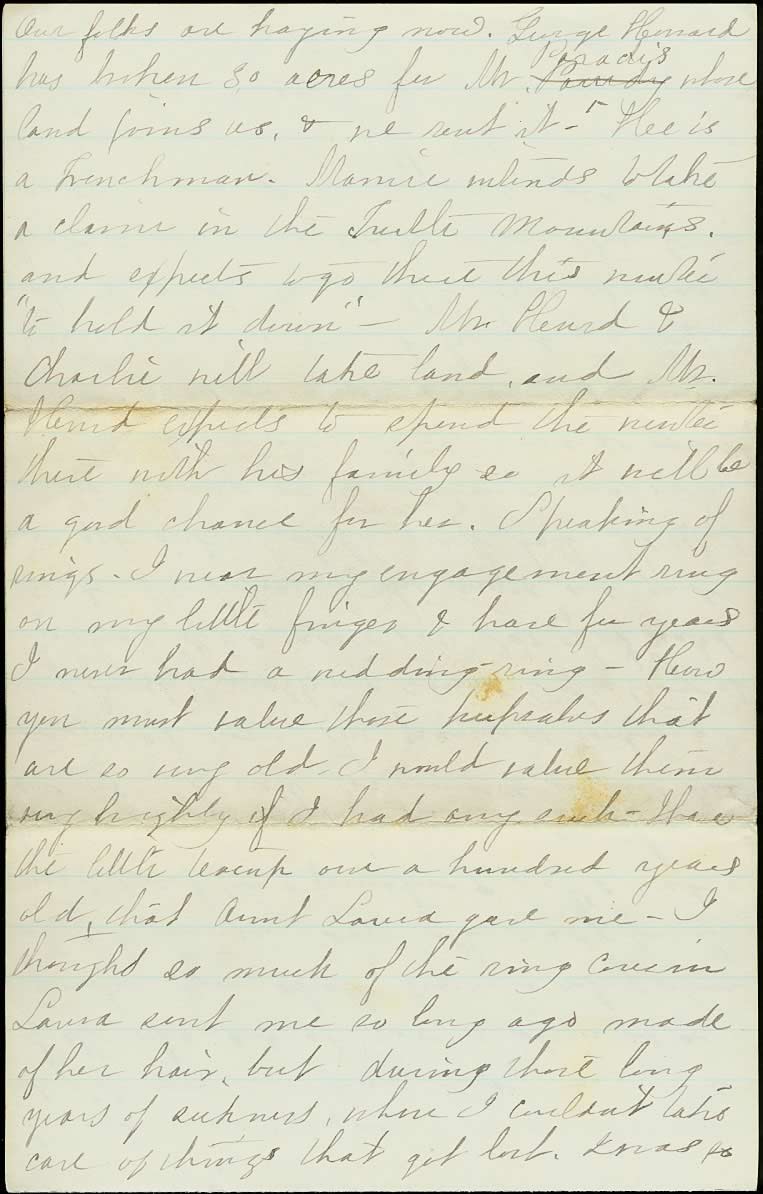 Our folks are haying now. George Hensard
has broken 80 acres for Mr. Paradis whose
land joins us, & we rent it - Hee is
a Frenchman - Mamie intends to take
a claim in the Turtle Mountains.
and expects to go there this winter
"to hold it down" - Mr. Heurd &
Charlie will take land, and Mr.
Heurd expects to spend the winter
there with his family so it will be
a good chance for her. Speaking of
rings - I wear my engagement ring
on my little finger & have for years
I never had a wedding-ring - How
you must value those keepsakes that
are so very old - I would value them
very highly if I had any such - I have
the little teacup over a hundred years
old, that Aunt Lovica gave me - I
thought so much of the ring Cousin
Laura sent me so long ago made
of her hair, but during those long
years of sickness, where I couldn't take
care of things that got lost. I was so